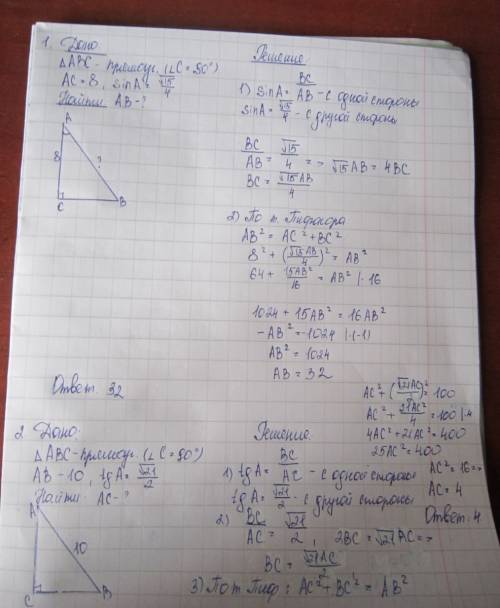 1. Дано:
△ABC - прямоуг. (∠C = 90°)
AC = 8, sinA = √15/4
Найти AB - ?
A
8
?
C
B
Решение
1) sinA = BC/AB - с одной стороны
sinA = √15/4 - с другой стороны
BC/AB = √15/4 => √15 AB = 4BC
BC = √15AB/4
2) По т. Пифагора
AB² = AC² + BC²
8² + (√15AB/4)² = AB²
64 + 15AB²/16 = AB² |· 16
1024 + 15AB² = 16AB²
-AB² = -1024 |·(-1)
AB² = 1024
AB = 32
Ответ 32
2 Дано:
△ABC - прямоуг. (∠C = 90°)
AB - 10, tgA = √21/2
Найти: AC - ?
A
10
C
B
Решение:
1) tgA = BC/AC - с одной стороны
tgA = √21/2 - с другой стороны
2) BC/AC = √21/2, 2BC = √21AC =>
BC = √21AC/2
3) По т Пиф: AC² + BC² = AB²
AC² + (√21AC/2)² = 100
AC² + 21AC²/4 = 100 |·4
4AC² + 21AC² = 400
25AC² = 400
AC² = 16 =>
AC = 4
Ответ: 4